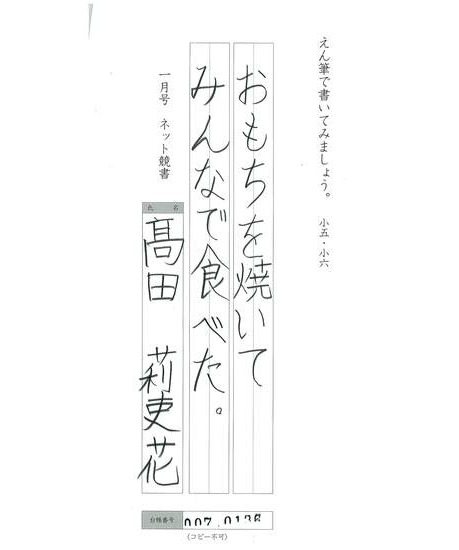 えん筆で書いてみましょう。 小五・小六
おもちを焼いて
みんなで食べた。
一月号 ネット競書
氏 名
髙田 莉吏花
台帳番号
007.0136
(コピー不可)